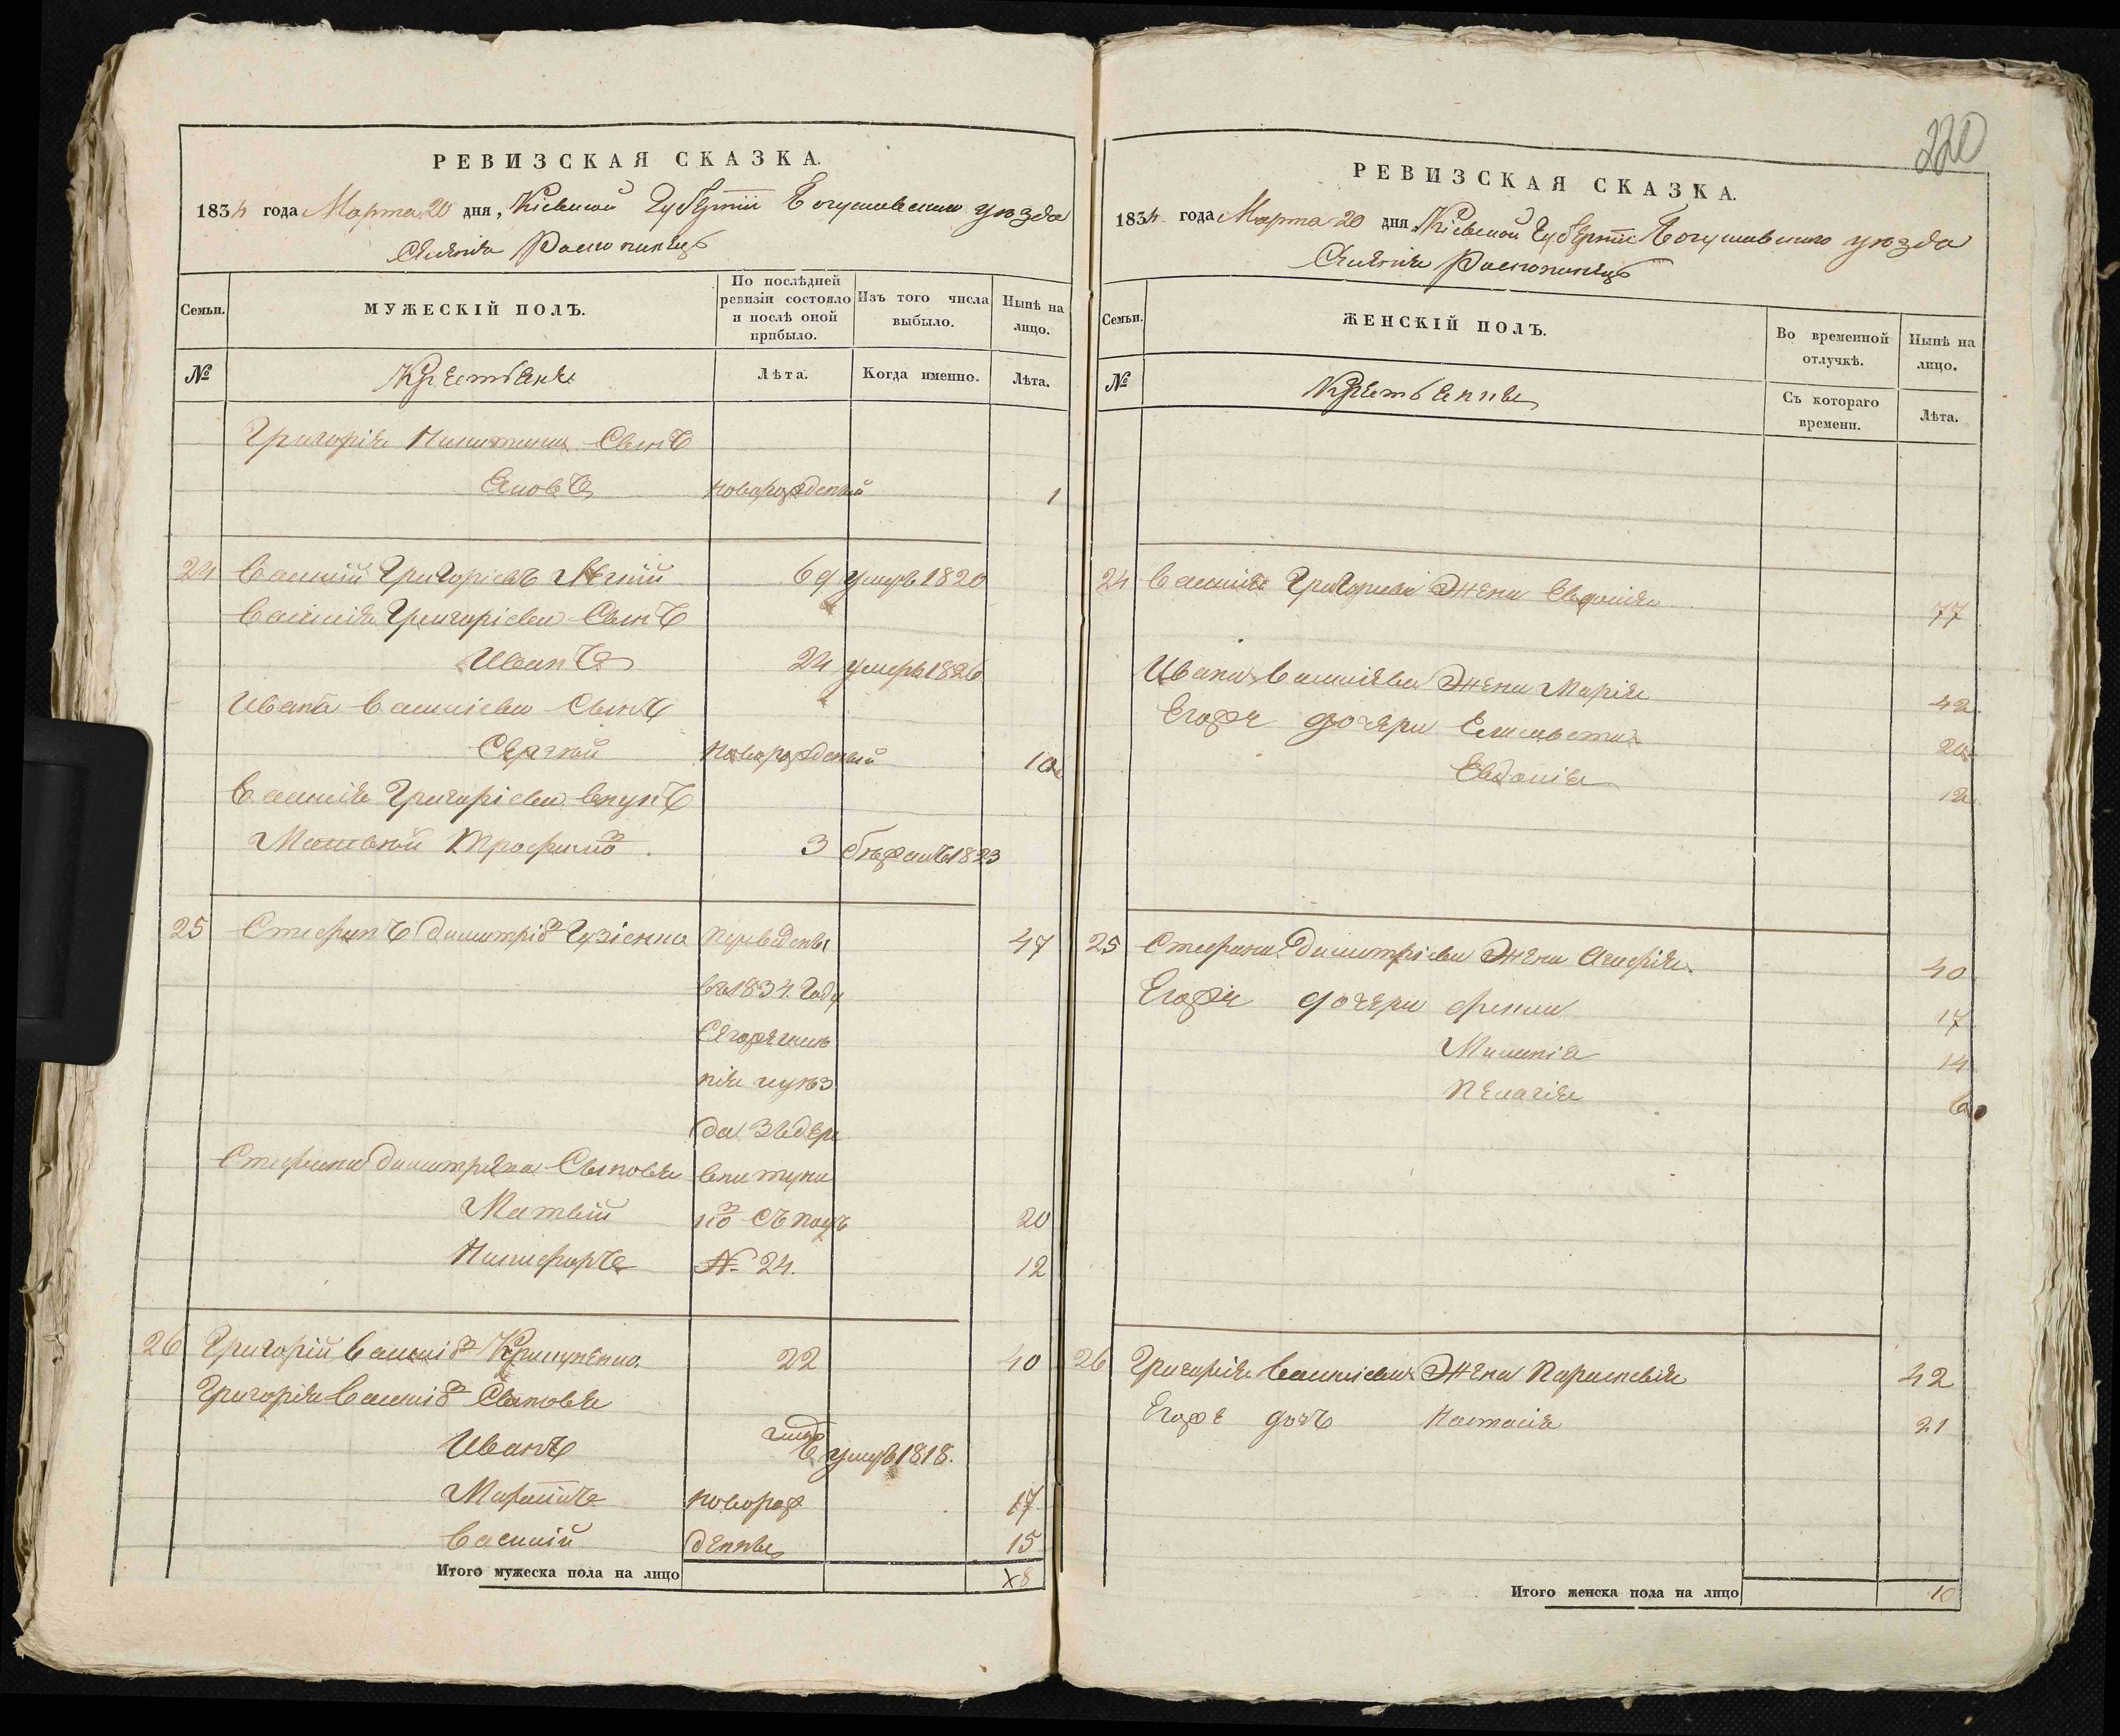 РЕВИЗСКАЯ СКАЗКА.
1834 года Марта 20 дня, Кіевской Губерніи Богуславского уѣзда
Селенія Раскопинецъ
Семьи.
МУЖЕСКІЙ ПОЛЪ.
По послѣдней ревизіи состояло и послѣ оной прибыло.
Изъ того числа выбыло.
Нынѣ на лицо.
№
Крестьяне
Лѣта.
Когда именно.
Лѣта.
Григорія Никитина Сынъ
Яковъ новорожденный 1
24 Василій Григоріевъ 69 умеръ 1820
Василія Григоріева Сынъ
Иванъ 24 умеръ 1826
Ивана Василіева Сынъ
Сергій новорожденый 10
Василія Григоріева внукъ
Трофимо 3 бѣжалъ 1823
25 Стефанъ Димитріо Гузіенко переведены 47
въ 1834 Году
нія
да Зведере
Стефана Димитріева Сыновя
Матвій съ подъ 20
Никифоръ № 24. 12
26 Григорій Василіо 22 40
Григорія Василіо Сыновя
Иванъ 6 умеръ 1818.
новорож 17
Василій денные 15
Итого мужеска пола на лицо 8
220
РЕВИЗСКАЯ СКАЗКА.
1834 года Марта 20 дня Кіевской Губерніи Богуславского уѣзда
Селенія Раскопинецъ
Семьи.
ЖЕНСКІЙ ПОЛЪ.
Во временной отлучкѣ.
Нынѣ на лицо.
№
Съ котораго времени.
Лѣта.
24 Василія Григоріева Жена Евдокія 77
Ивана Василіева Жена Марія 42
Егоже дочери Елисавета 20
Евдокія 12
25 Стефана Димитріева Жена Агафія 40
Егоже дочери 17
14
Пелагія 6
26 Григорія Василіева Жена Параскевія 42
Егоже дочь Настасія 21
Итого женска пола на лицо 10